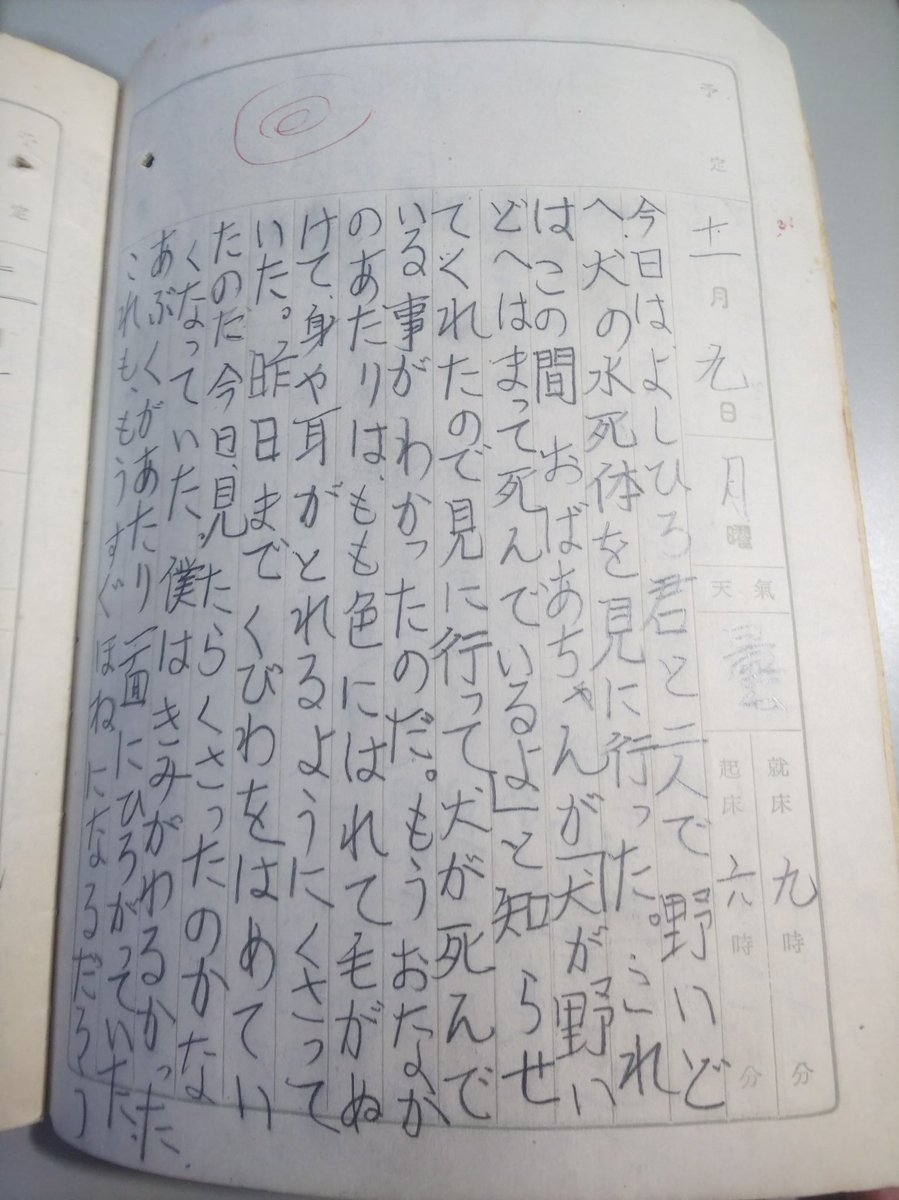 予定
十一月九日
月曜
天氣 曇
就床 九時 分
起床 六時 分
今日はよしひろ君と二人で野いど
へ、犬の水死体を見に行った。これ
は、この間 おばあちゃんが「犬が野い
どへはまって死んでいるよ」と知らせ
てくれたので見に行って、犬が死んで
いる事がわかったのだ。もうおなか
のあたりは、もも色にはれて毛がぬ
けて、身や耳がとれるようにくさって
いた。昨日までくびわをはめてい
たのだ 今日、見たらくさったのかな
くなっていた。僕はきみがわるかった、
あぶくがあたり一面にひろがっていた、
これも、もうすぐほねになるだろう
予
定